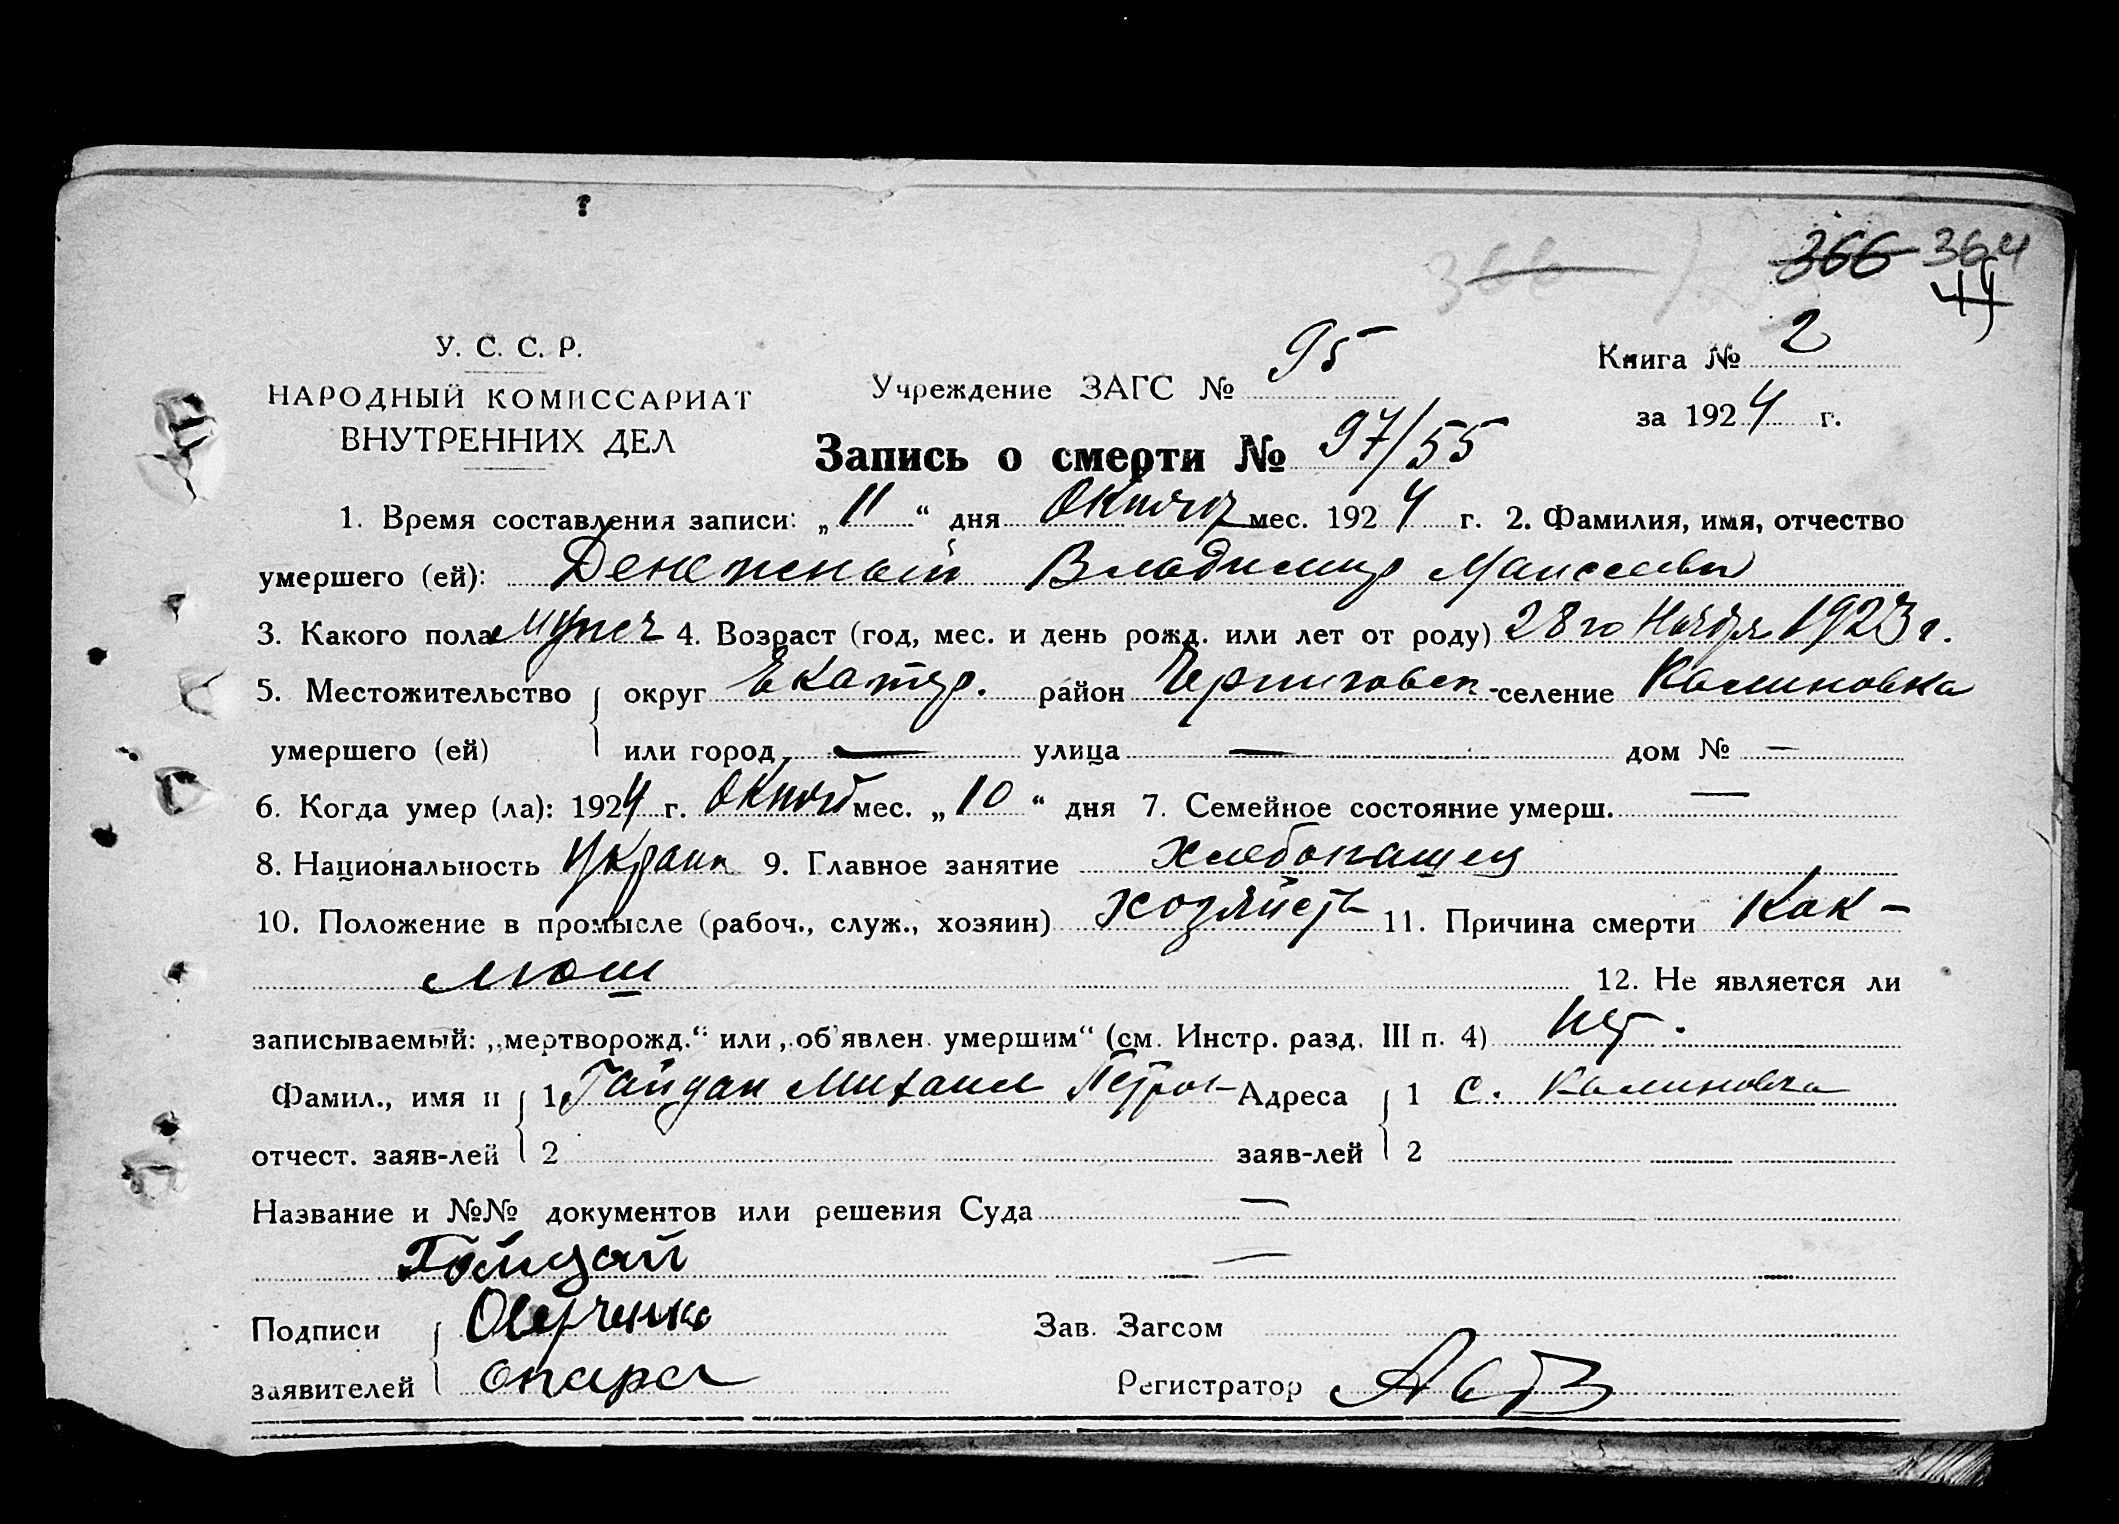 366 366 364
44
У. С. С. Р.
НАРОДНЫЙ КОМИССАРИАТ
ВНУТРЕННИХ ДЕЛ
Учреждение ЗАГС № 95
Книга № 2
за 1924 г.
Запись о смерти № 97/55
1. Время составления записи: „11“ дня Октябр мес. 1924 г. 2. Фамилия, имя, отчество
умершего (ей): Денежный Владимир Моисеевич
3. Какого пола мужск 4. Возраст (год, мес. и день рожд. или лет от роду) 28го Ноября 1923 г.
5. Местожительство округ Екатер. район Черниговск. селение Калиновка
умершего (ей) или город — улица — дом № —
6. Когда умер (ла): 1924 г. Октяб мес. „10“ дня 7. Семейное состояние умерш. —
8. Национальность Украин 9. Главное занятие хлебопашец
10. Положение в промысле (рабоч., служ., хозяин) хозяйств 11. Причина смерти Кок-
люш 12. Не является ли
записываемый: „мертворожд.“ или „об'явлен умершим“ (см. Инстр. разд. III п. 4) нет.
Фамил., имя и 1 Гайдай Михаил Петров Адреса 1 с. Калиновка
отчест. заяв-лей 2 заяв-лей 2
Название и №№ документов или решения Суда —
Гайдай —
Подписи Оверченко Зав. Загсом
заявителей Опара Регистратор